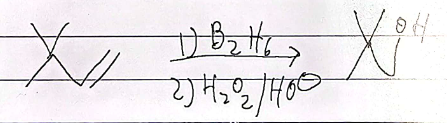 1) B₂H₆
2) H₂O₂/HO⊖
OH